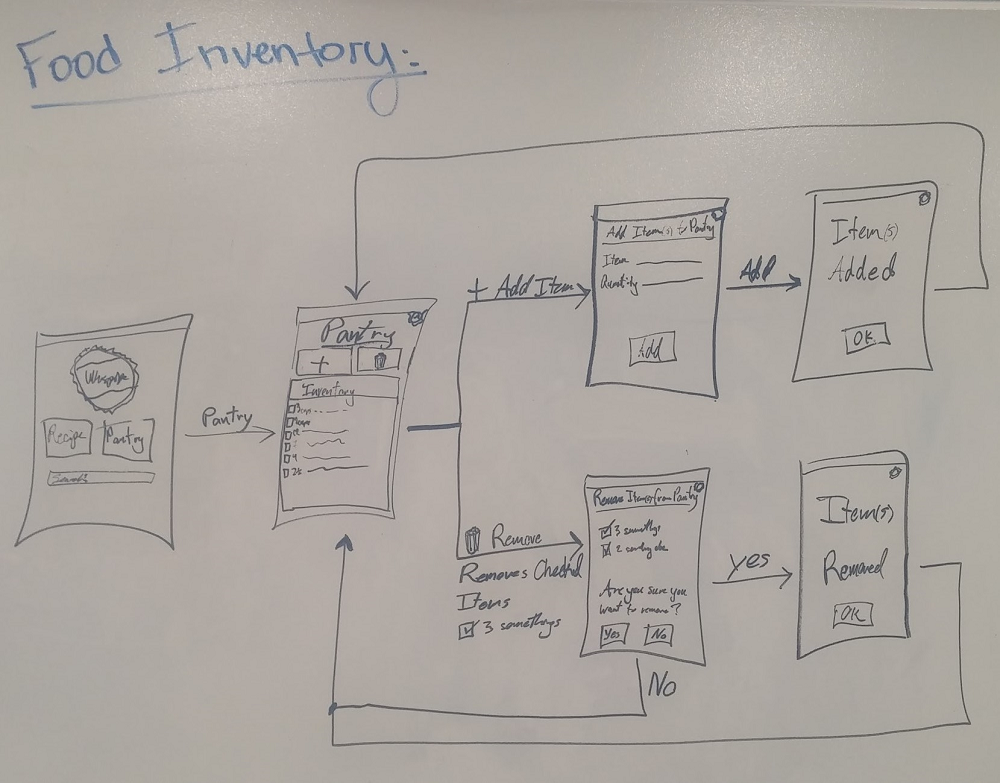 Food Inventory:
Recipe
Pantry
Search
Pantry
Pantry
+
Inventory
+ Add Item
Add Item(s) to Pantry
Item
Quantity
Add
Add
Item(s)
Added
OK
Remove
Removes Checked
Items
3 somethings
Remove Item(s) from Pantry
3 somethings
2
Are you sure you
want to remove?
Yes
No
yes
Item(s)
Removed
OK
No